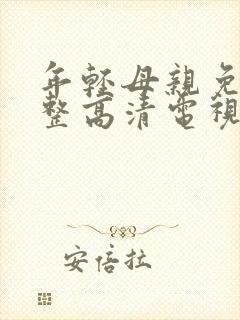 年輕母親免
整高清電視
安倍拉